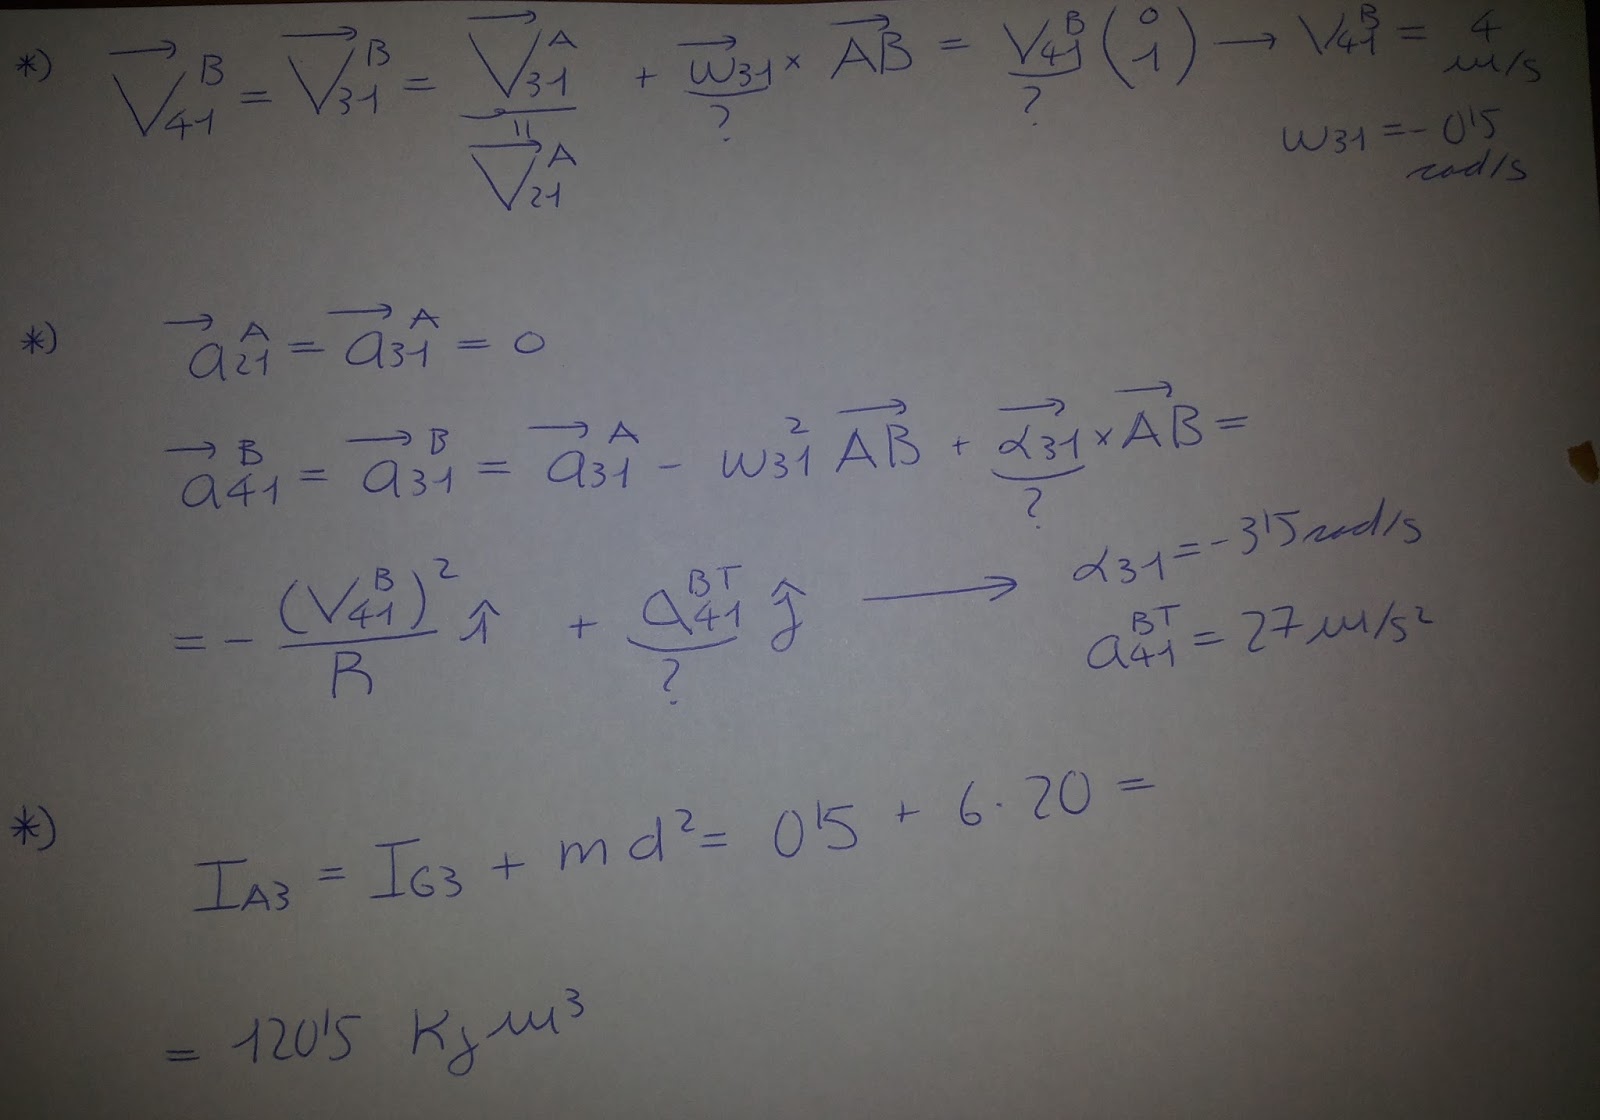 *) V⃗₄₁ᴮ = V⃗₃₁ᴮ = V⃗₃₁ᴬ + w⃗₃₁ × AB⃗ = V₄₁ᴮ (0 1) → V₄₁ᴮ = 4 m/s
= V⃗₂₁ᴬ ? ? w₃₁ = -0'5 rad/s
*) a⃗₂₁ᴬ = a⃗₃₁ᴬ = 0
a⃗₄₁ᴮ = a⃗₃₁ᴮ = a⃗₃₁ᴬ - w₃₁² AB⃗ + α⃗₃₁ × AB⃗ =
?
= - (V₄₁ᴮ)²/R î + a₄₁ᴮᵀ ĵ → α₃₁ = -3'5 rad/s
? a₄₁ᴮᵀ = 27 m/s²
*) I_A3 = I_G3 + md² = 0'5 + 6·20 =
= 120'5 Kg m³